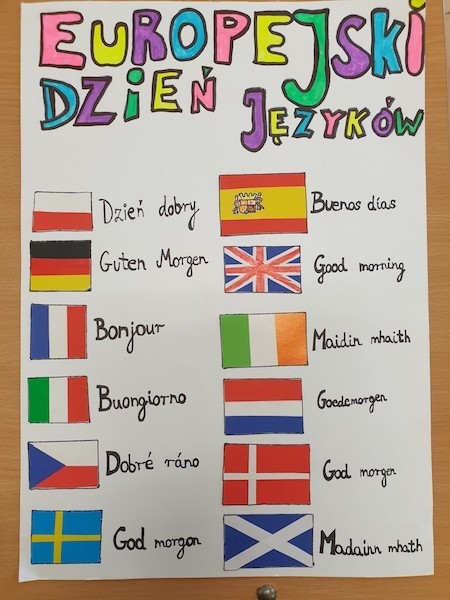 EUROPEJSKI
DZIEŃ JĘZYKÓW
Dzień dobry
Buenos días
Guten Morgen
Good morning
Bonjour
Maidin mhaith
Buongiorno
Goedemorgen
Dobré ráno
God morgen
God morgon
Madainn mhath